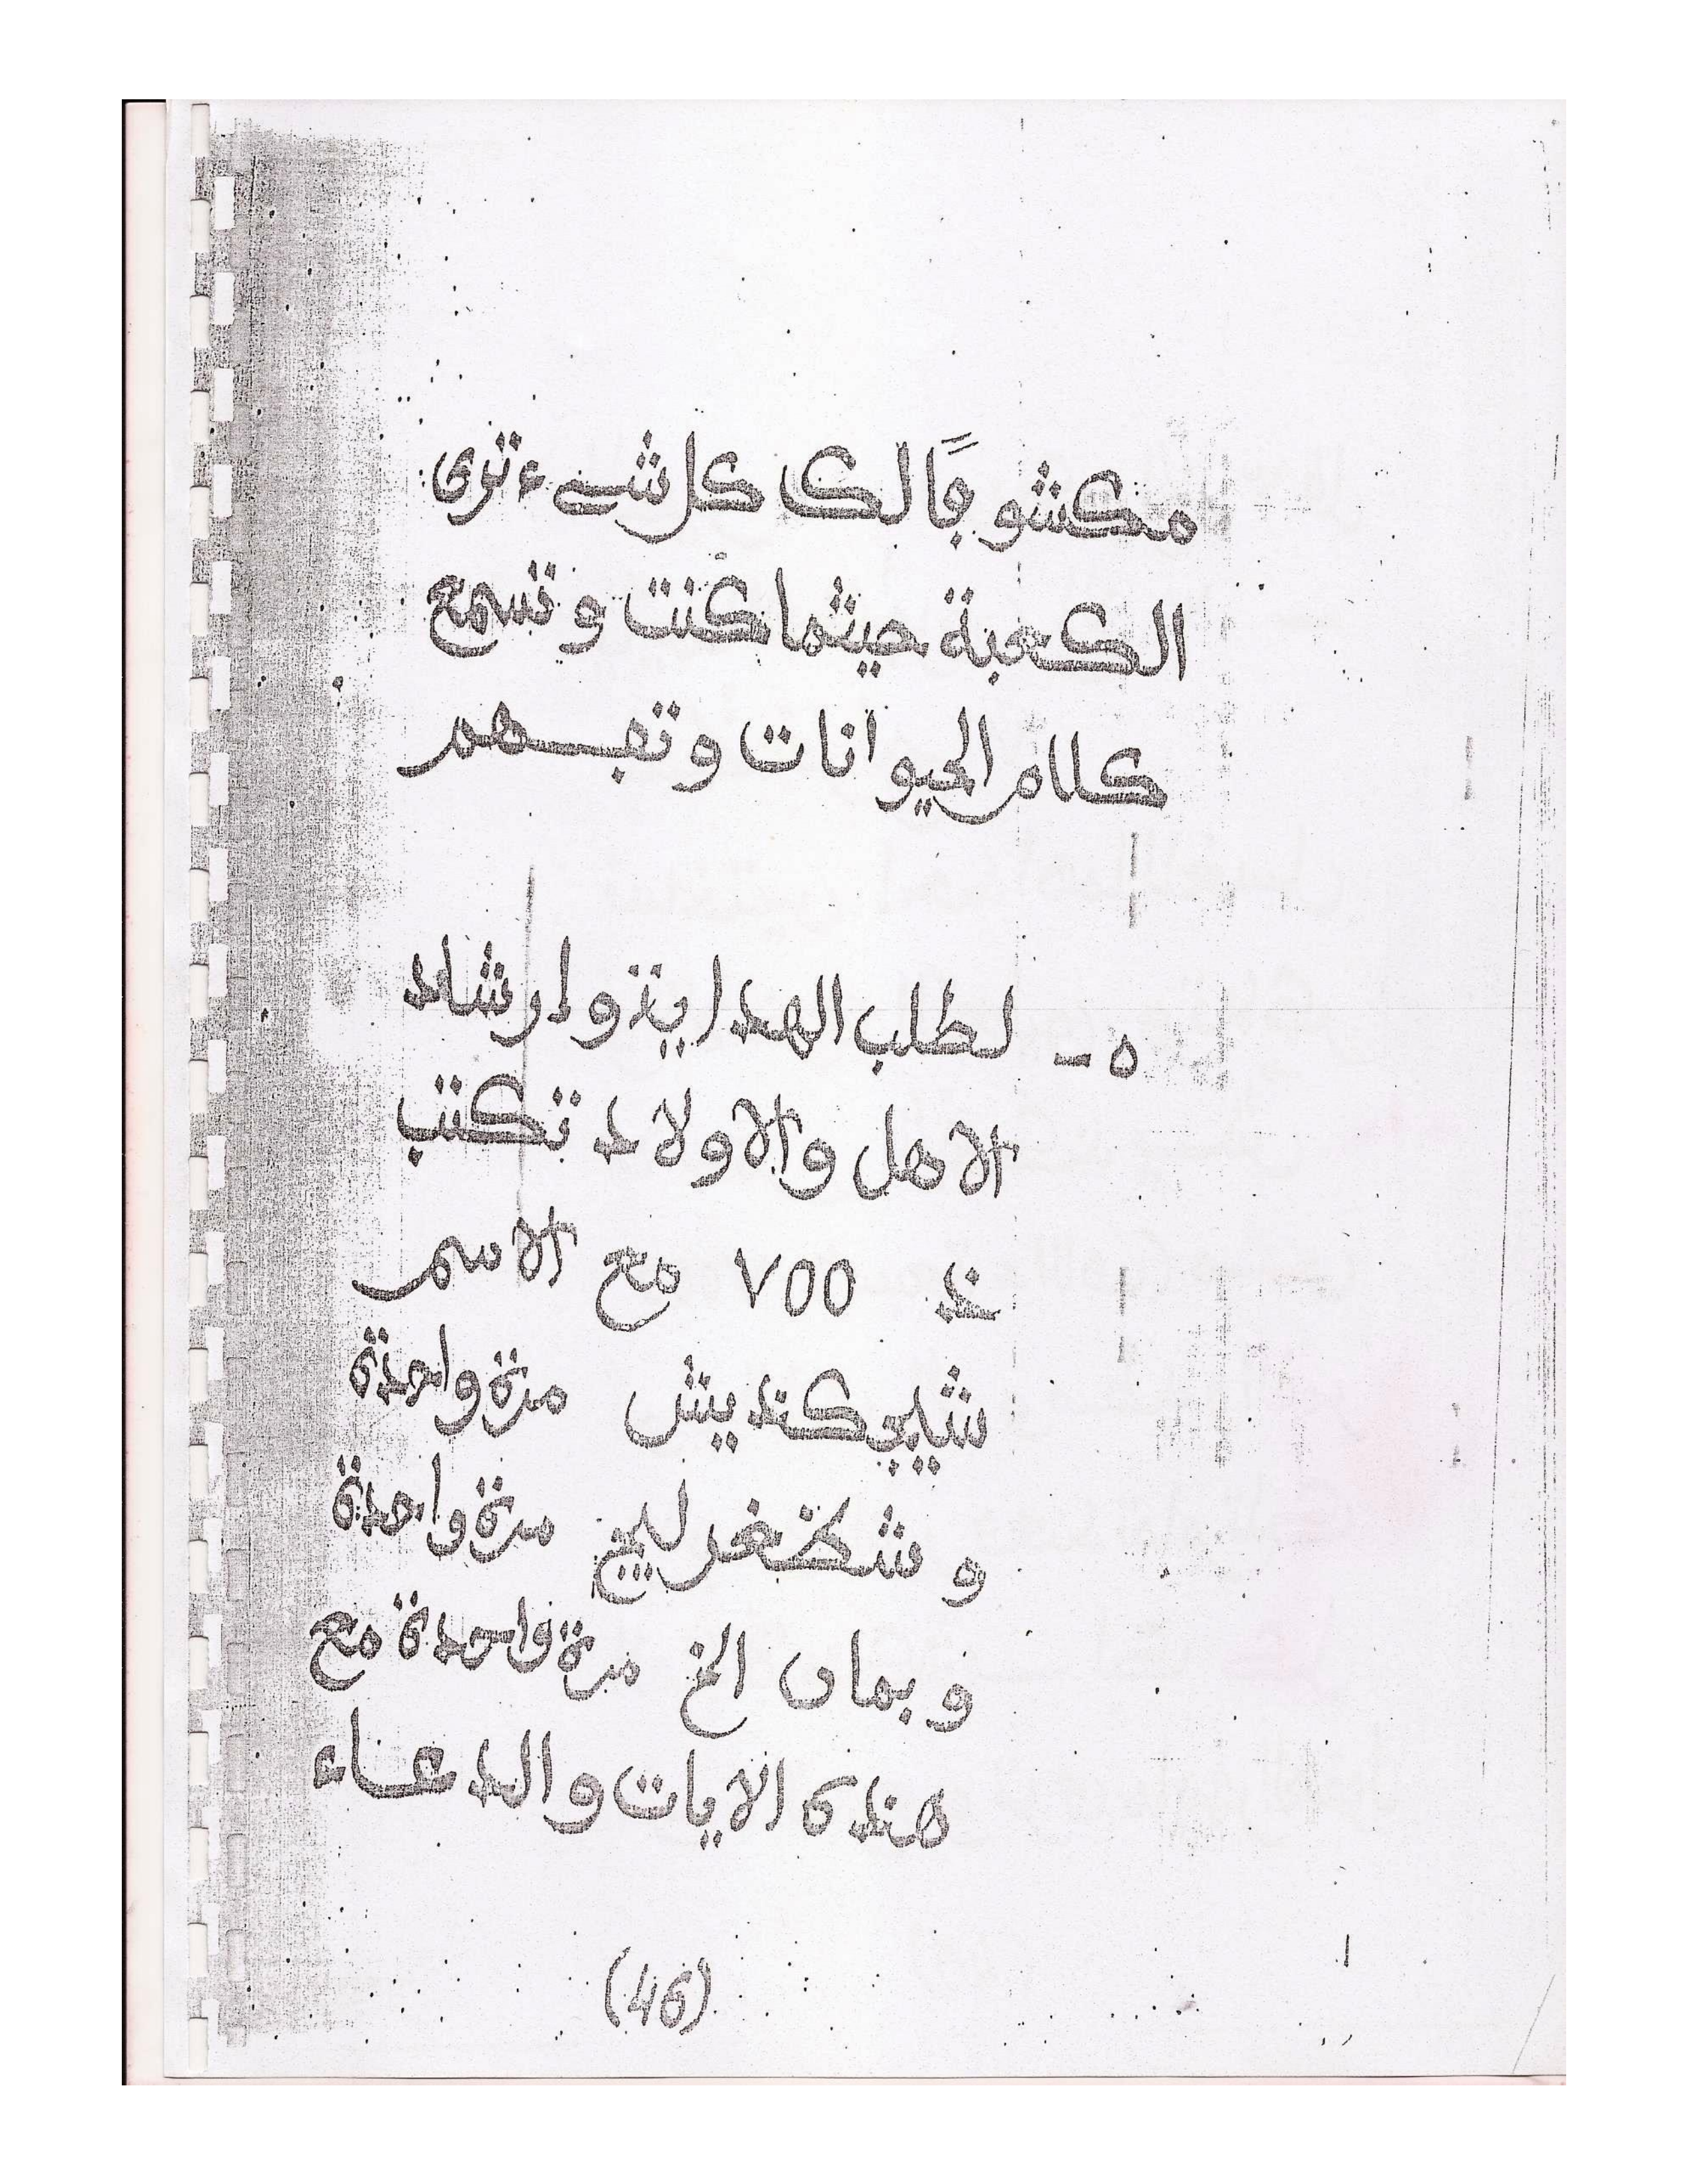 مكشوفًا لك كل شيء ترى
الكعبة حيثما كنت و تسمع
كلام الحيوانات و تفهم
٥ - لطلب الهداية و إرشاد
الاهل والاولاد تكتب
خذ ٧٥٥ مع الاسم
مرة واحدة
و مرة واحدة
و بمان الخ مرة واحدة مع
هذه الايات والدعاء
(46)